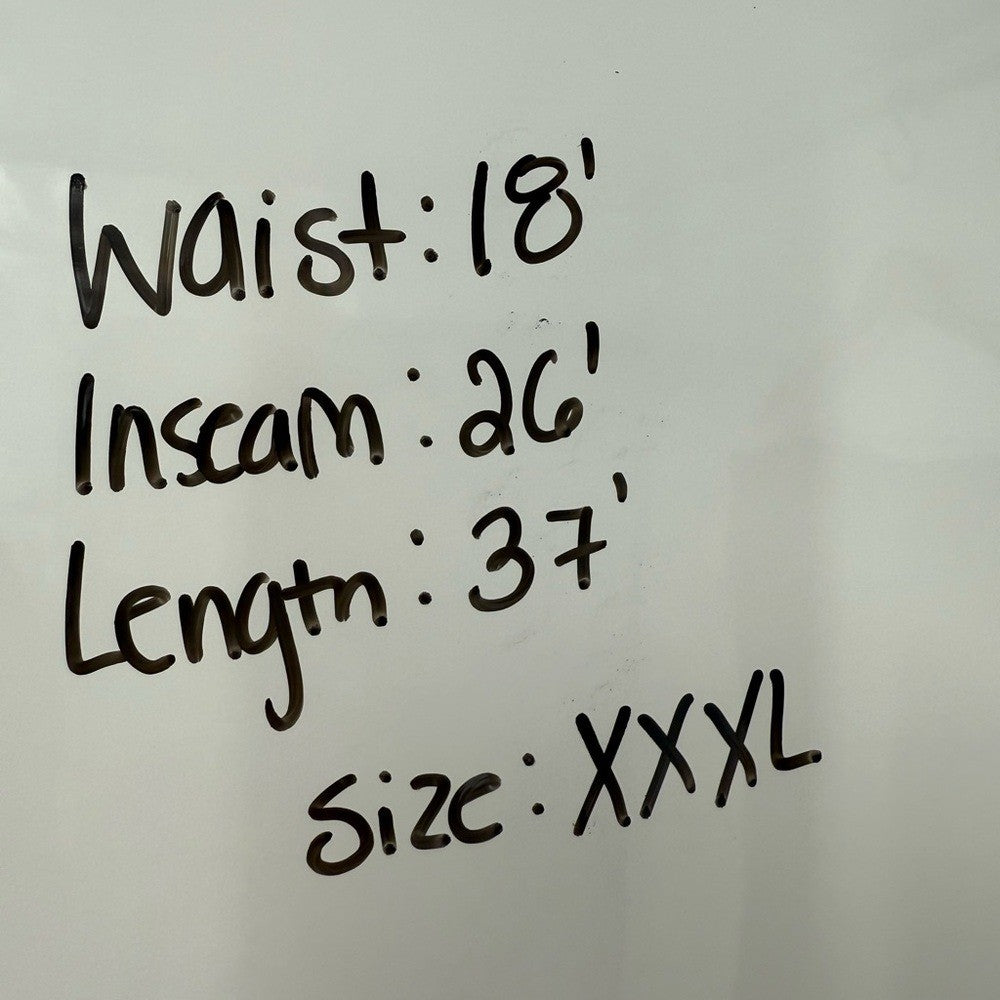 Waist: 18'
Inseam: 26'
Length: 37'
Size: XXXL